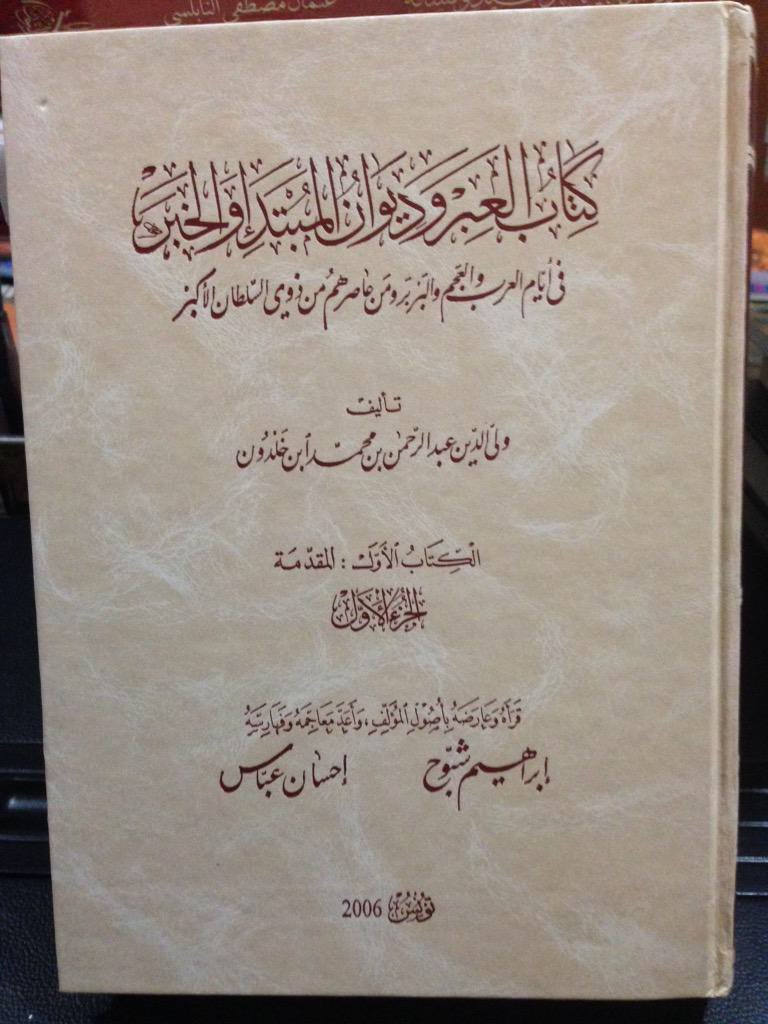 عثمان مصطفى النابلسي
كتاب العِبَر وَديوَان المُبتَدَإ وَالخبَر
في أيّام العرب والعَجم والبَربَر ومَن عاصرهمُ من ذوي السّلطان الأكبر
تأليف
وليّ الدّين عبد الرّحمٰن بن محمّد ٱبن خَلدُون
الْكِتَابُ ٱلأَوَّل : المقدّمَة
الجزء الأوّل
قَرَأَهُ وَعَارَضَهُ بِأُصُولِ المُؤَلِّفِ، وَأَعَدَّ مَعَاجِمَهُ وَفَهَارِسَهُ
إبراهيم شبّوح إحسان عبّاس
تونس 2006